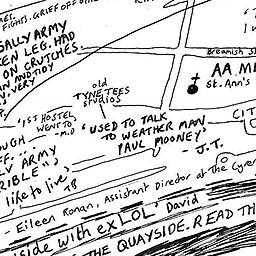 FIGHTS. GRIEF OFF
SALLY ARMY
KEN LEG. HAD
ON CRUTCHES.
AN AND TIDY
VERY
Breamish S
AA ME
St. Ann's
old
TYNE TEES
STUDIOS
'1ST HOSTEL
WENT TO'
- M.D
'USED TO TALK
TO WEATHER MAN
PAUL MOONEY'
- J.T.
CIT
OUGH
FF.
LV ARMY
RIBLE"
like to live'
TB
- Eileen Ronan, Assistant Director at The Cyre
side with ex LOL' David
THE QUAYSIDE. READ TH